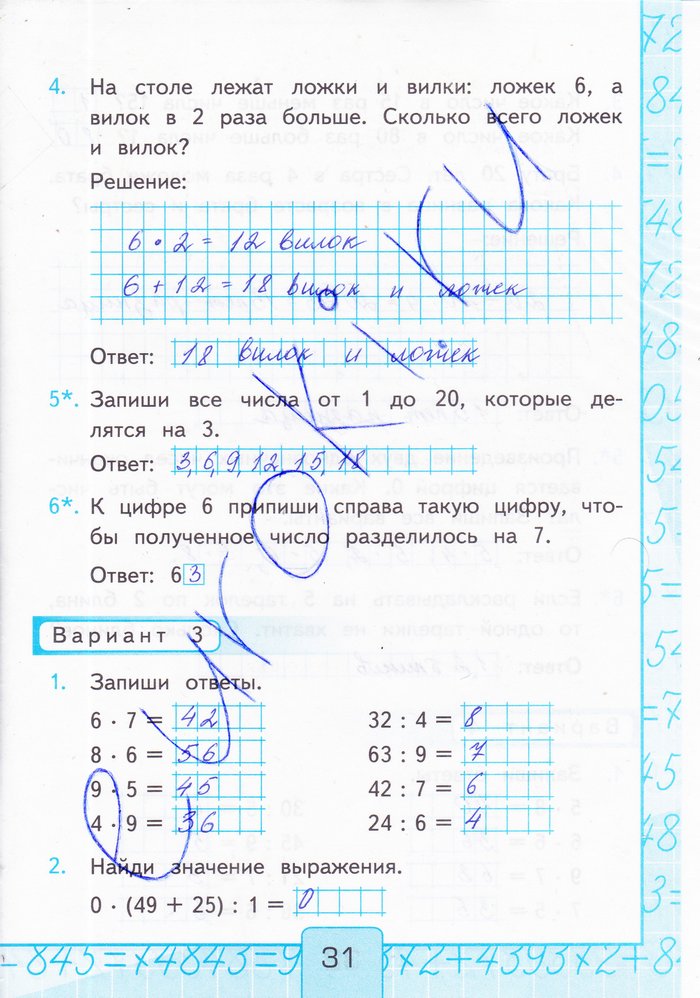 4. На столе лежат ложки и вилки: ложек 6, а
вилок в 2 раза больше. Сколько всего ложек
и вилок?
Решение:
6 · 2 = 12 вилок
6 + 12 = 18 вилок и ложек
Ответ: 18 вилок и ложек
5*. Запиши все числа от 1 до 20, которые де-
лятся на 3.
Ответ: 3, 6, 9, 12, 15, 18
6*. К цифре 6 припиши справа такую цифру, что-
бы полученное число разделилось на 7.
Ответ: 63
Вариант 3
1. Запиши ответы.
6 · 7 = 42 32 : 4 = 8
8 · 6 = 56 63 : 9 = 7
9 · 5 = 45 42 : 7 = 6
4 · 9 = 36 24 : 6 = 4
2. Найди значение выражения.
0 · (49 + 25) : 1 = 0
31